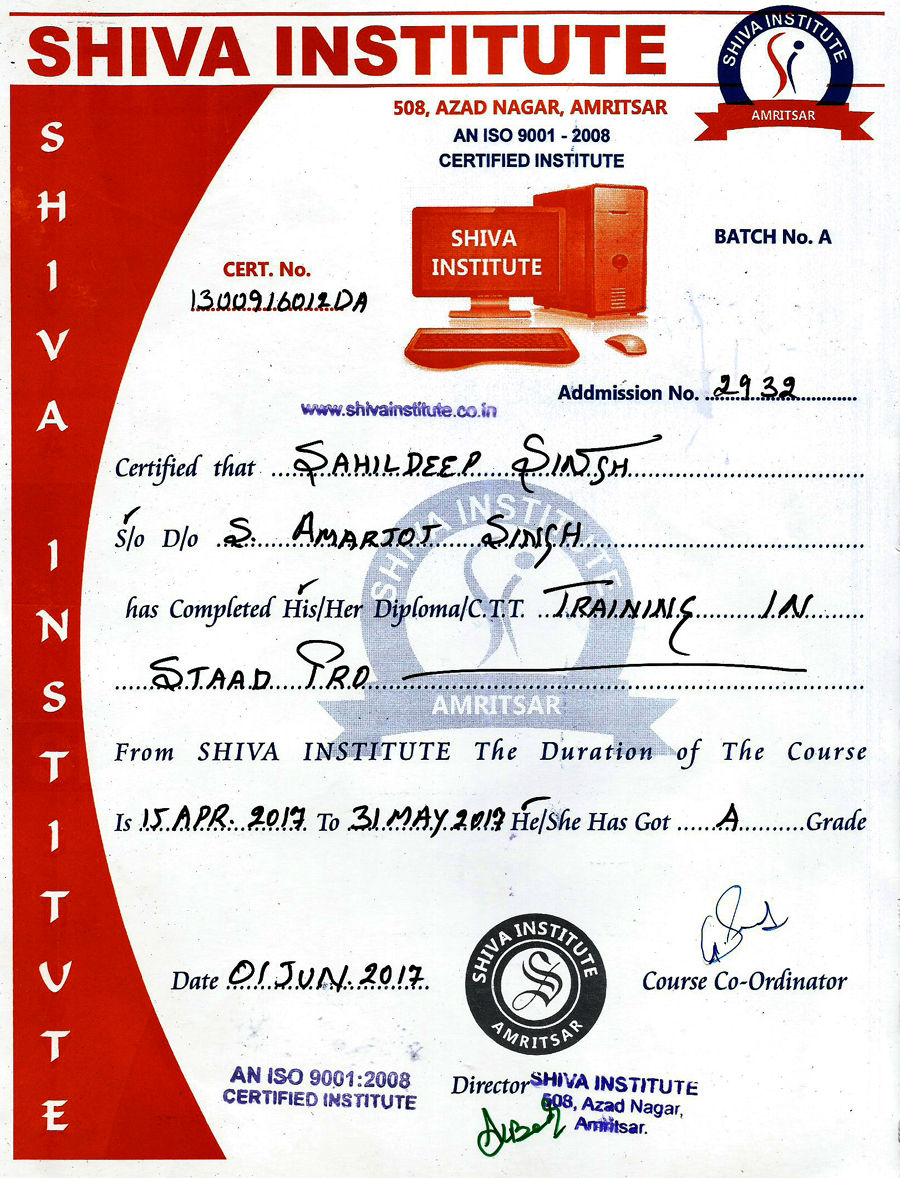 SHIVA INSTITUTE
SHIVA INSTITUTE
AMRITSAR
508, AZAD NAGAR, AMRITSAR
AN ISO 9001 - 2008
CERTIFIED INSTITUTE
SHIVA INSTITUTE
SHIVA
INSTITUTE
BATCH No. A
CERT. No.
1300916012DA
Addmission No. 2932
www.shivainstitute.co.in
Certified that SAHILDEEP SINGH
S/o D/o S. AMARJOT SINGH
has Completed His/Her Diploma/C.T.T. TRAINING IN
STAAD PRO
SHIVA INSTITUTE
AMRITSAR
From SHIVA INSTITUTE The Duration of The Course
Is 15 APR. 2017 To 31 MAY 2017 He/She Has Got A Grade
Date 01 JUN. 2017
SHIVA INSTITUTE
AMRITSAR
Course Co-Ordinator
AN ISO 9001:2008
CERTIFIED INSTITUTE
Director
SHIVA INSTITUTE
508, Azad Nagar,
Amritsar.